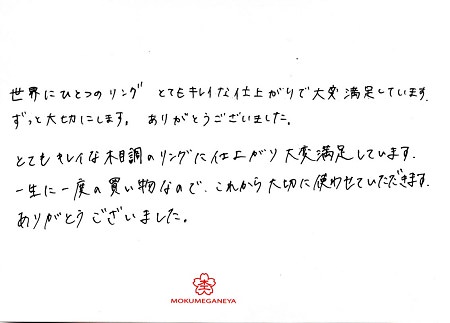 世界にひとつのリング とてもキレイな仕上がりで大変満足しています.
ずっと大切にします。 ありがとうございました。
とてもキレイな木目調のリングに仕上がり大変満足しています.
一生に一度の買い物なので、これから大切に使わせていただきます.
ありがとうございました。
MOKUMEGANEYA